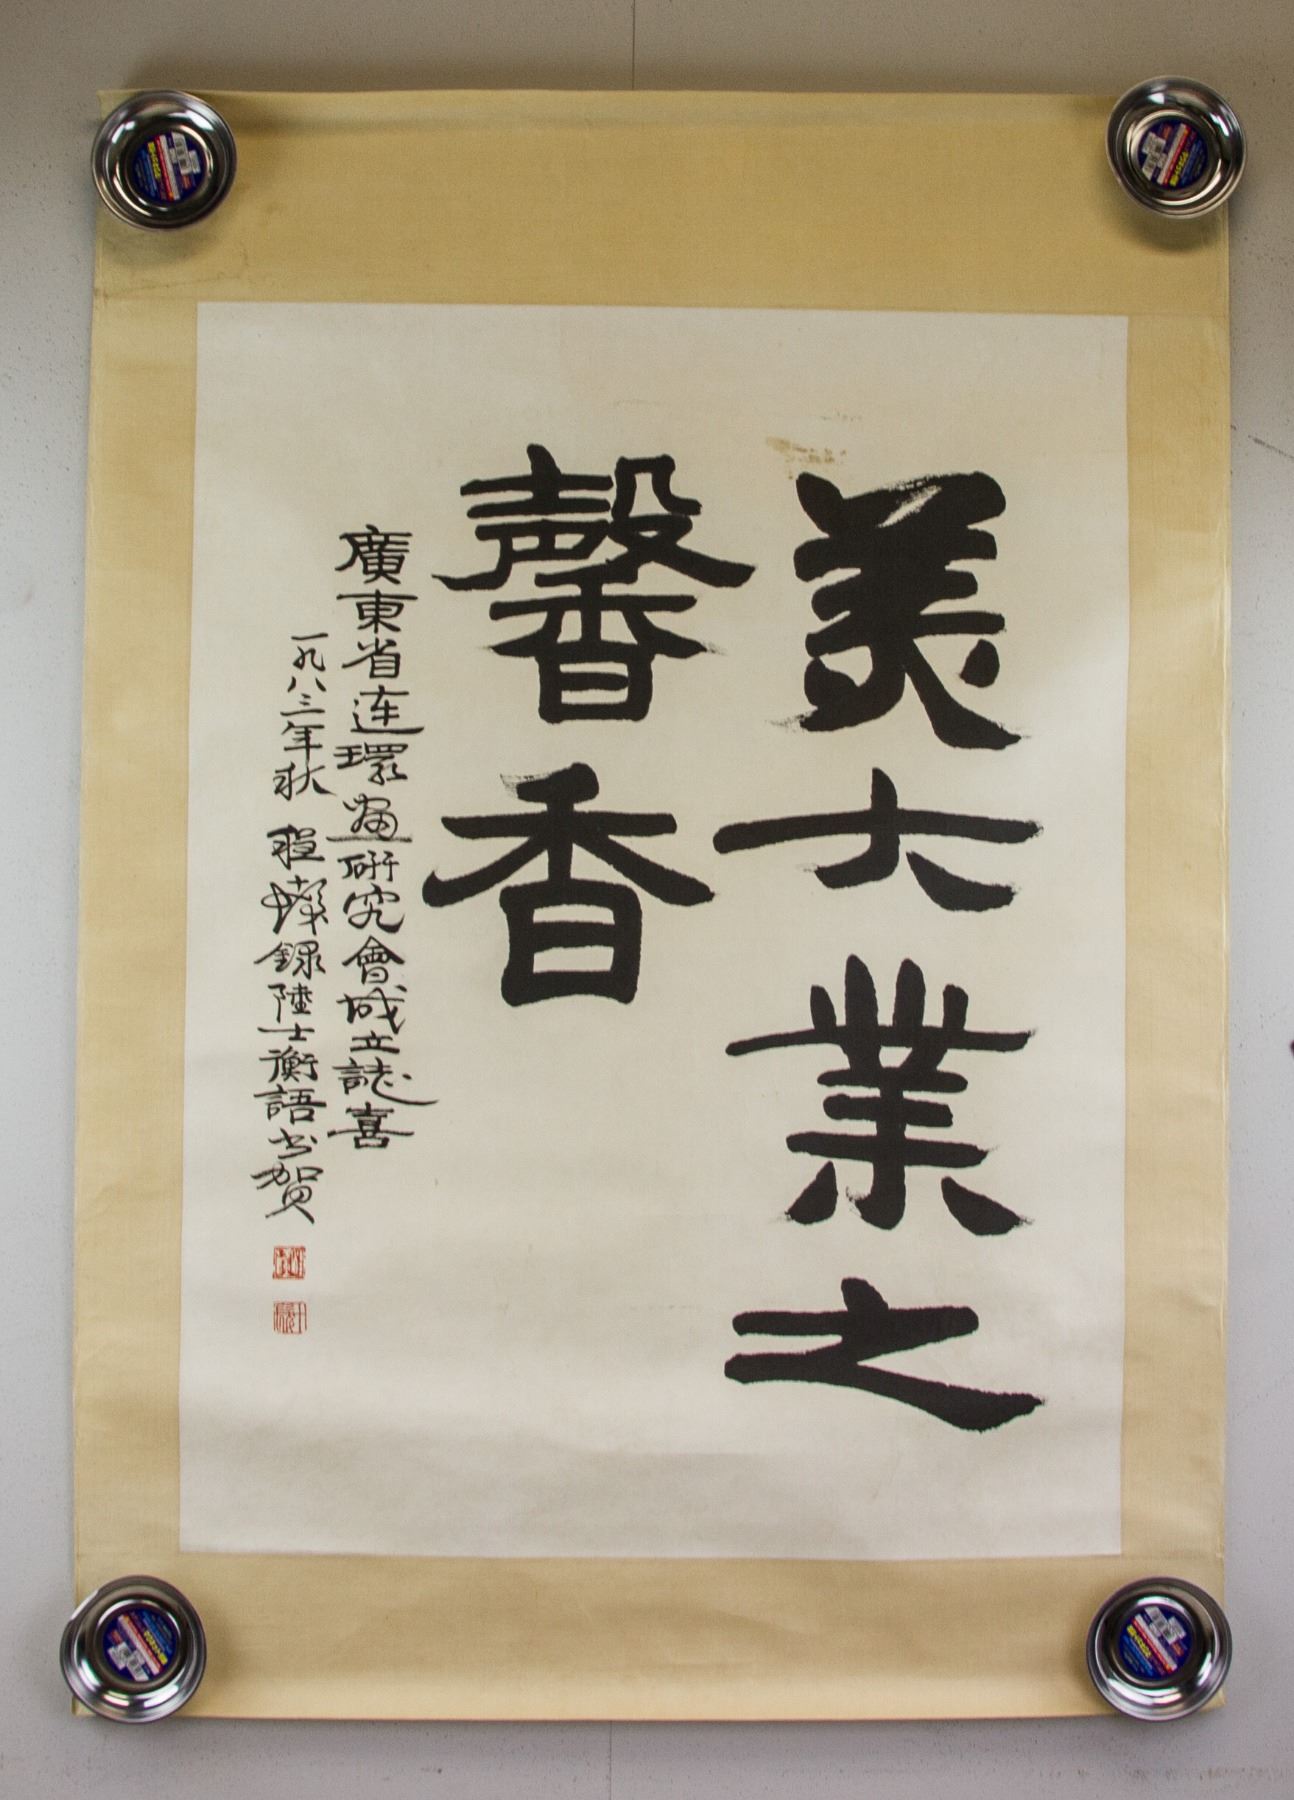 美大業之
馨香
廣東省连環畫研究會成立誌喜
一九八三年秋 程十發錄陸士衡語书贺